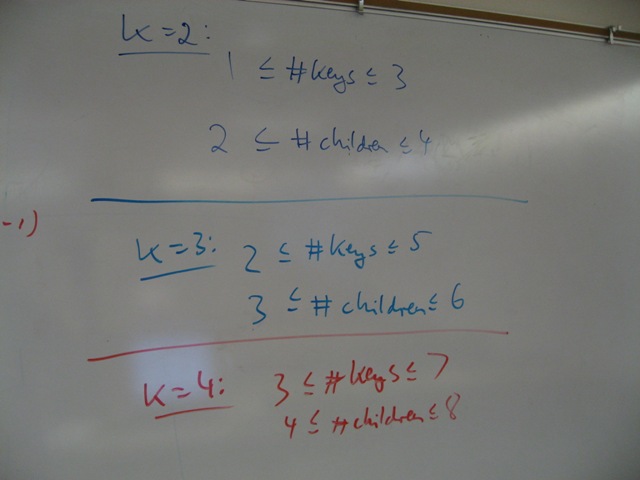 K=2:
1 ≤ #keys ≤ 3
2 ≤ #children ≤ 4
-1)
K=3: 2 ≤ #keys ≤ 5
3 ≤ #children ≤ 6
K=4: 3 ≤ #keys ≤ 7
4 ≤ #children ≤ 8